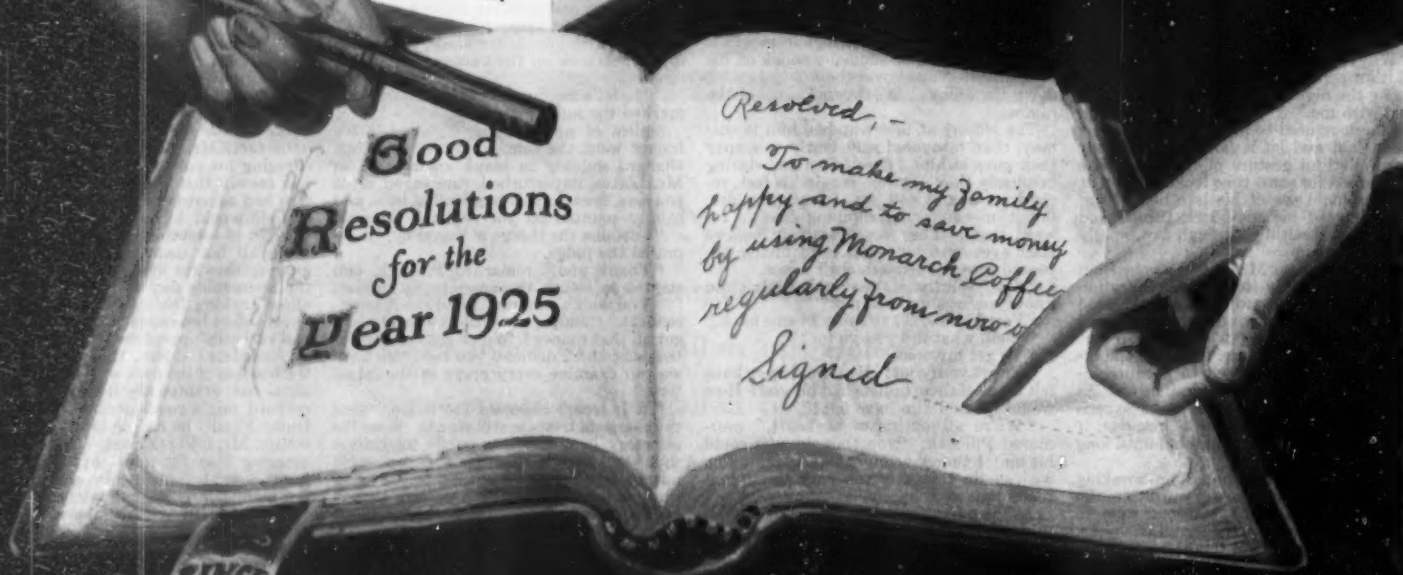 Good
Resolutions
for the
Year 1925
Resolved, -
To make my family
happy and to save money
by using Monarch Coffee
regularly from now
Signed